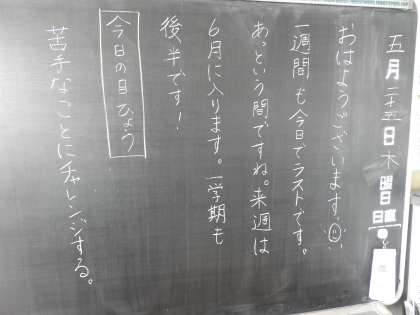 五月二十五日木曜日
日直
おはようございます。
一週間も今日でラストです。
あっという間ですね。来週は
6月に入ります。一学期も
後半です！
今日の目ひょう
苦手なことにチャレンジする。